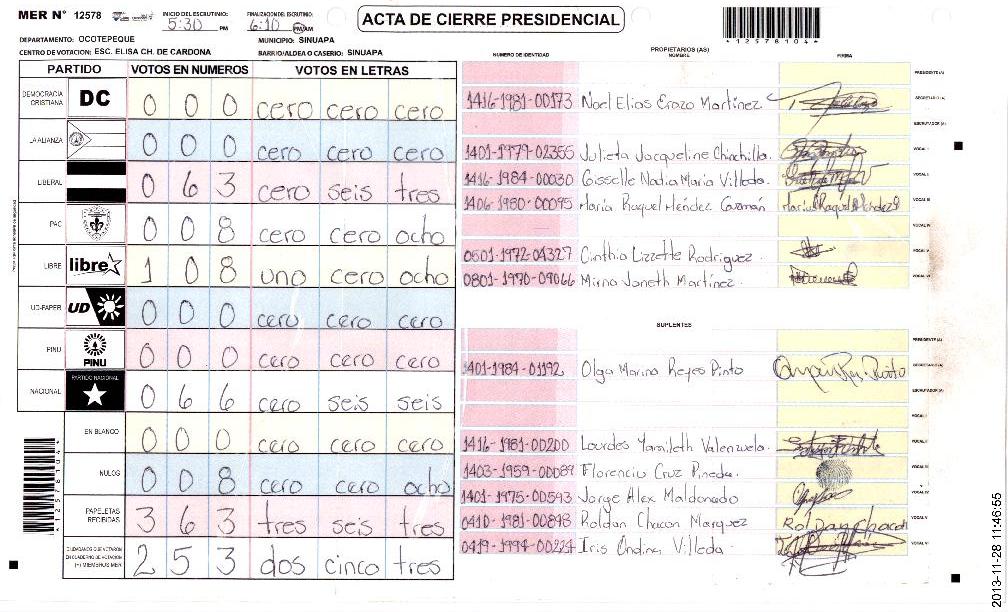 MER N° 12578
INICIO DEL ESCRUTINIO: 5:30 PM
FINALIZACION DEL ESCRUTINIO: 6:10 AM PM
ACTA DE CIERRE PRESIDENCIAL
*12578104*
DEPARTAMENTO: OCOTEPEQUE
MUNICIPIO: SINUAPA
CENTRO DE VOTACION: ESC. ELISA CH. DE CARDONA
BARRIO/ALDEA O CASERIO: SINUAPA
PARTIDO VOTOS EN NUMEROS VOTOS EN LETRAS
DEMOCRACIA CRISTIANA DC 0 0 0 cero cero cero
LA ALIANZA 0 0 0 cero cero cero
LIBERAL 0 6 3 cero seis tres
PAC 0 0 8 cero cero ocho
LIBRE libre 1 0 8 uno cero ocho
UD-FAPER UD 0 0 0 cero cero cero
PINU PINU 0 0 0 cero cero cero
NACIONAL PARTIDO NACIONAL 0 6 6 cero seis seis
EN BLANCO 0 0 0 cero cero cero
NULOS 0 0 8 cero cero ocho
PAPELETAS RECIBIDAS 3 6 3 tres seis tres
CIUDADANOS QUE VOTARON EN CUADERNO DE VOTACION (+) MIEMBROS MER 2 5 3 dos cinco tres
*12578104*
NUMERO DE IDENTIDAD PROPIETARIOS (AS) NOMBRE FIRMA
PRESIDENTE (A)
1416-1981-00173 Noel Elias Erazo Martinez SECRETARIO (A)
ESCRUTADOR (A)
1401-1979-02355 Julieta Jacqueline Chinchilla. VOCAL I
1416-1984-00030 Gisselle Nadia Maria Villeda. VOCAL II
1406-1980-00095 Maria Raquel Méndez Guzmán VOCAL III
VOCAL IV
0501-1972-04327 Cinthia Lizzette Rodriguez. VOCAL V
0801-1970-09066 Mirna Janeth Martínez. VOCAL VI
SUPLENTES
PRESIDENTE (A)
1401-1984-01192 Olga Marina Reyes Pinto SECRETARIO (A)
ESCRUTADOR (A)
VOCAL I
1416-1981-00200 Lourdes Yamileth Valenzuela. VOCAL II
1403-1959-00089 Florencio Cruz Pineda. VOCAL III
1401-1975-00593 Jorge Alex Maldonado VOCAL IV
0410-1981-00898 Roldan Chacon Marquez Roldan Chacon VOCAL V
0419-1994-00224 Iris Ondina Villeda. VOCAL VI
2013-11-28 11:46:55